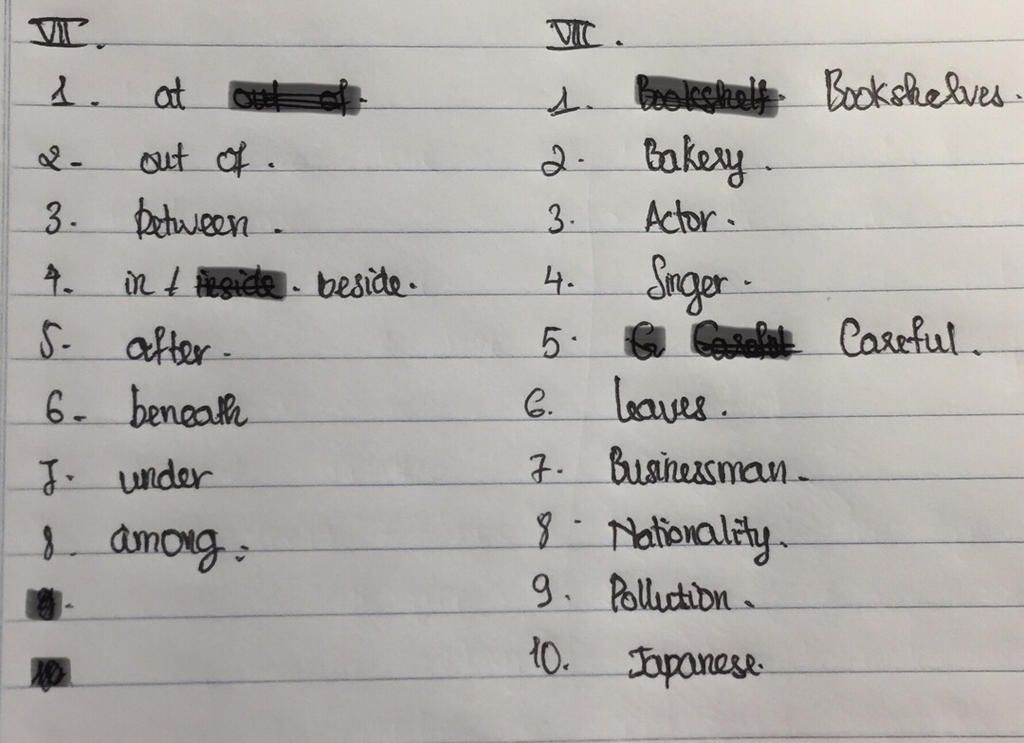 VII.
1. at
2- out of.
3. between.
4. in / beside.
5- after.
6- beneath
7. under
8. among.
VIII.
1. Bookshelves.
2. Bakery.
3. Actor.
4. Singer.
5. Careful.
6. leaves.
7. Businessman.
8. Nationality.
9. Pollution.
10. Japanese.